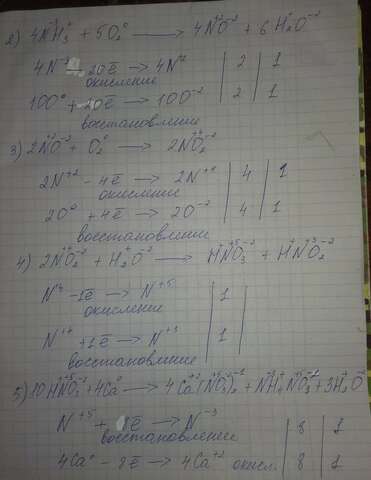 2) 4N⁻³H₃⁺ + 5O₂⁰ ⟶ 4N⁺²O⁻² + 6H₂⁺O⁻²
4N⁻³ - 20ē → 4N⁺² | 2 | 1
окисление
10O⁰ + 20ē → 10O⁻² | 2 | 1
восстановление
3) 2N⁺²O⁻² + O₂⁰ ⟶ 2N⁺⁴O₂⁻²
2N⁺² - 4ē → 2N⁺⁴ | 4 | 1
окисление
2O⁰ + 4ē → 2O⁻² | 4 | 1
восстановление
4) 2N⁺⁴O₂⁻² + H₂⁺O⁻² ⟶ H⁺N⁺⁵O₃⁻² + H⁺N⁺³O₂⁻²
N⁺⁴ - 1ē → N⁺⁵ | 1 |
окисление
N⁺⁴ + 1ē → N⁺³ | 1 |
восстановление
5) 10HNO₃ + 4Ca⁰ ⟶ 4Ca(NO₃)₂ + NH₄NO₃ + 3H₂O
N⁺⁵ + 8ē → N⁻³ | 8 | 1
восстановление
4Ca⁰ - 8ē → 4Ca⁺² окисл. | 8 | 1